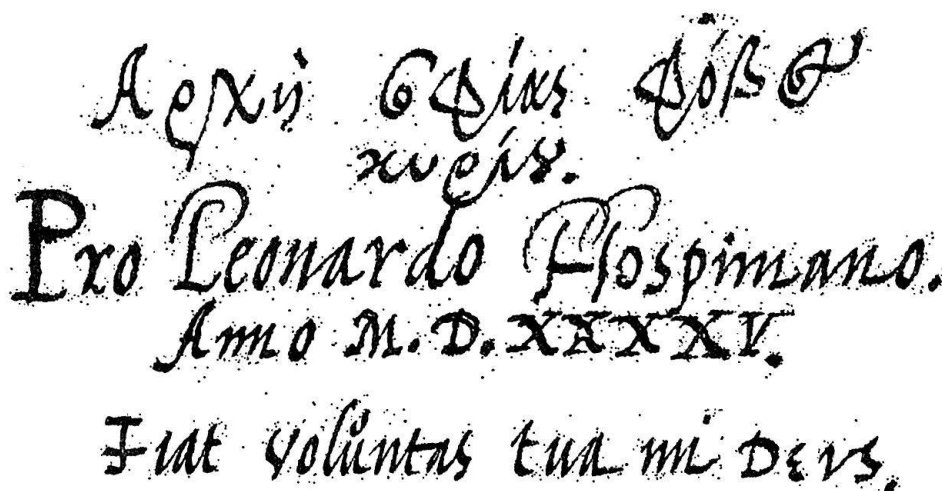 Αρχὴ σοφίας φόβος
κυρίου.
Pro Leonardo Hospiniano.
Anno M. D. XXXXV.
Fiat volůntas tua mi DEVS.